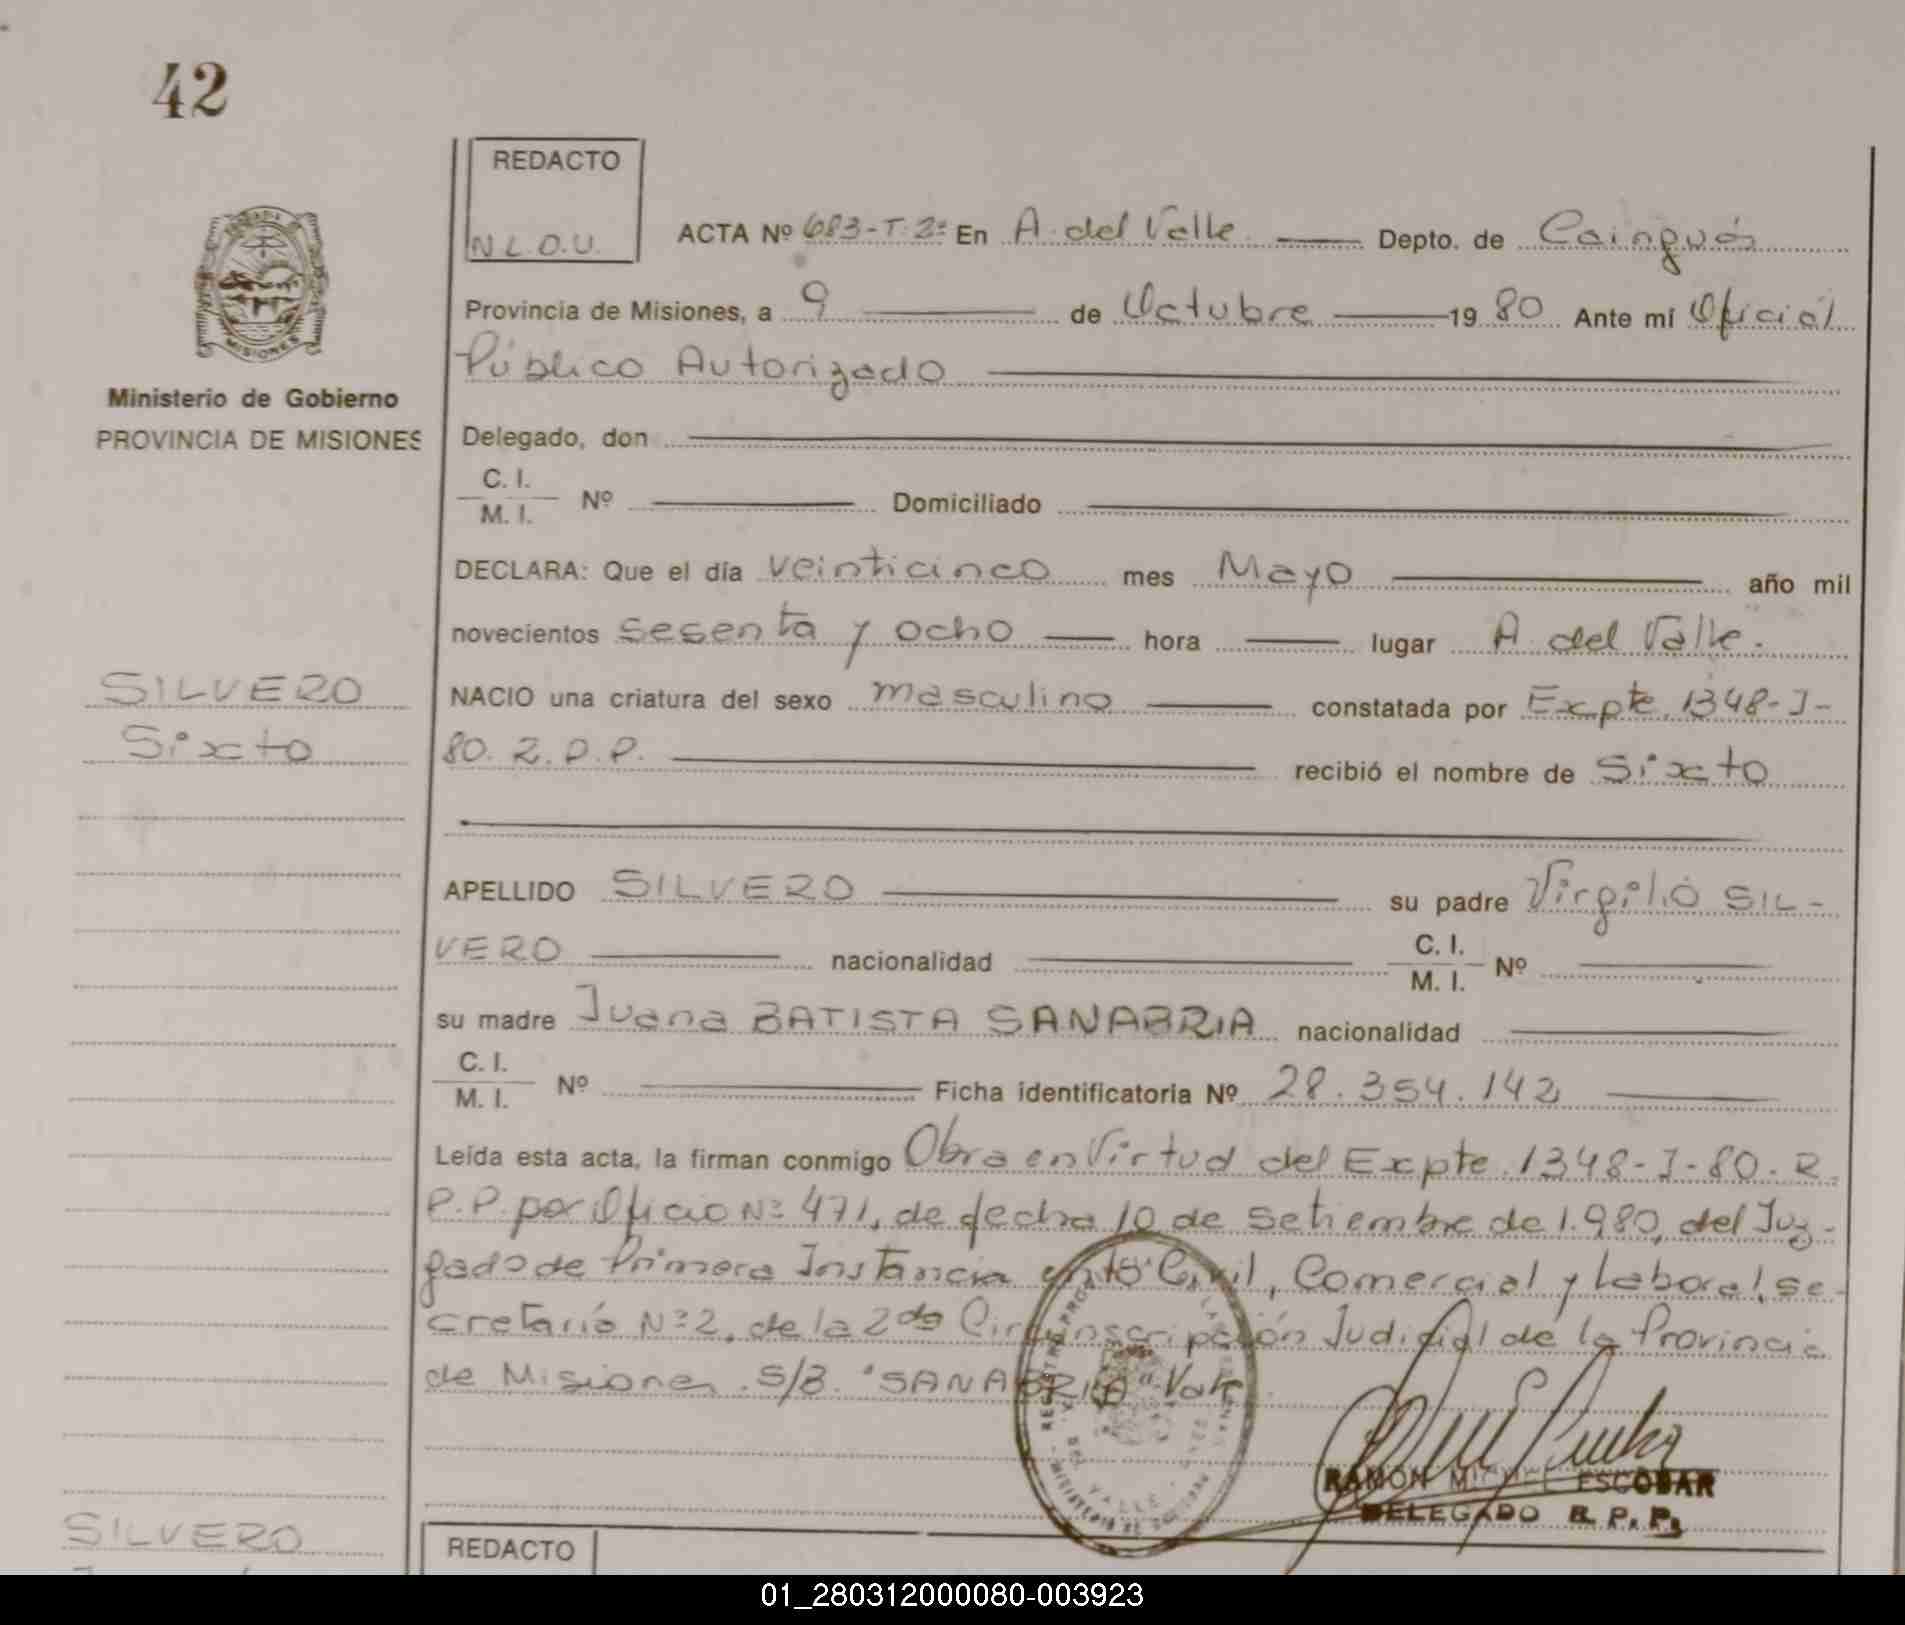 42
REDACTO
N L. O. U.
ACTA Nº 683-T. 2º En A. del Valle Depto. de Cainguás
MISIONES
Provincia de Misiones, a 9 de Octubre 1980 Ante mí Oficial
Público Autorizado
Ministerio de Gobierno
PROVINCIA DE MISIONES
Delegado, don
C. I.
M. I. Nº Domiciliado
DECLARA: Que el día veinticinco mes Mayo año mil
novecientos sesenta y ocho hora lugar A. del Valle.
SILVERO
Sixto
NACIO una criatura del sexo masculino constatada por Expte. 1348-J-
80. R. P. P. recibió el nombre de Sixto
APELLIDO SILVERO su padre Virgilio SIL-
VERO nacionalidad C. I.
M. I. Nº
su madre Juana BATISTA SANABRIA nacionalidad
C. I.
M. I. Nº Ficha identificatoria Nº 28.354.142
Leída esta acta, la firman conmigo Obra en Virtud del Expte. 1348-J-80. R.
P. P. por Oficio Nº 471, de fecha 10 de Setiembre de 1.980, del Juz-
gado de Primera Instancia en lo Civil, Comercial y Laboral, se-
cretaría Nº 2, de la 2da Circunscripción Judicial de la Provincia
de Misiones. S/B. "SANABRIA" Vale
RAMON MIGUEL ESCOBAR
DELEGADO R. P. P.
SILVERO
REDACTO
01_280312000080-003923